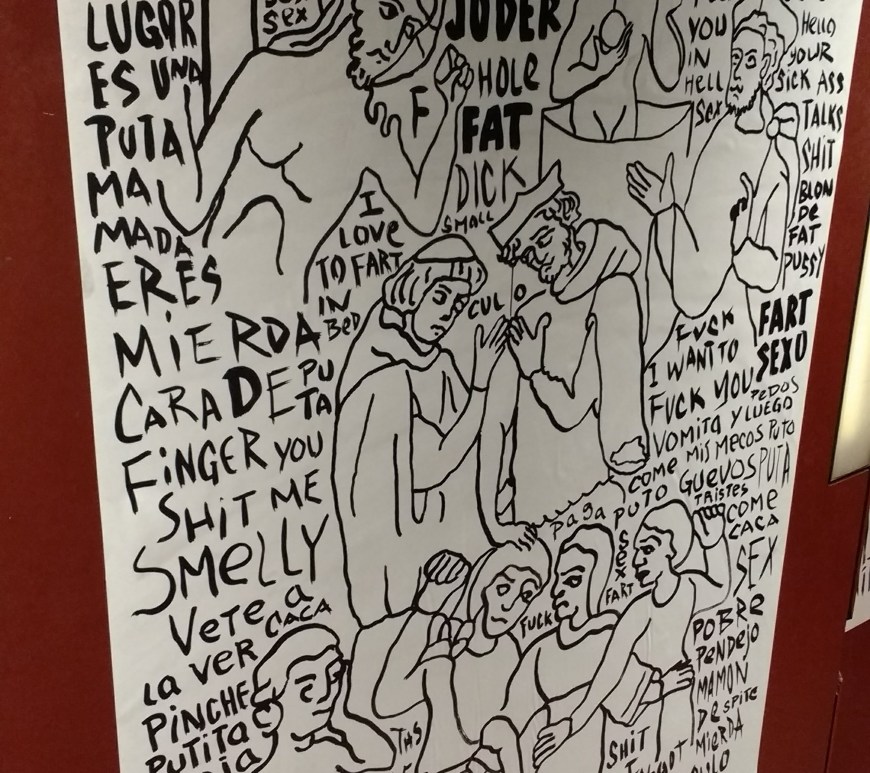 LUGAR
ES UNA
PUTA
MAL
MADA
ERES
MIERDA
CARA DE PU
TA
FINGER YOU
SHIT ME
SMELLY
VETE A
LA VER
CACA
PINCHE
PUTITA
SEX
F
I
LOVE
TO FART
IN
BED
JODER
HOLE
FAT
DICK
SMALL
CULO
YOU
IN
HELL
SEX
HELLO
YOUR
SICK ASS
TALKS
SHIT
BLON
DE
FAT
PUSSY
FART
SEXO
FUCK
I WANT TO
FUCK YOU
PEDOS
VOMITO Y LUEGO
COME MIS MECOS PUTO
paga PUTO GUEVOS PUTA
TRISTES
COME
CACA
SEX
FART
FUCK
SEX
POBRE
PENDEJO
MAMON
DESPITE
MIERDA
THS
SHIT